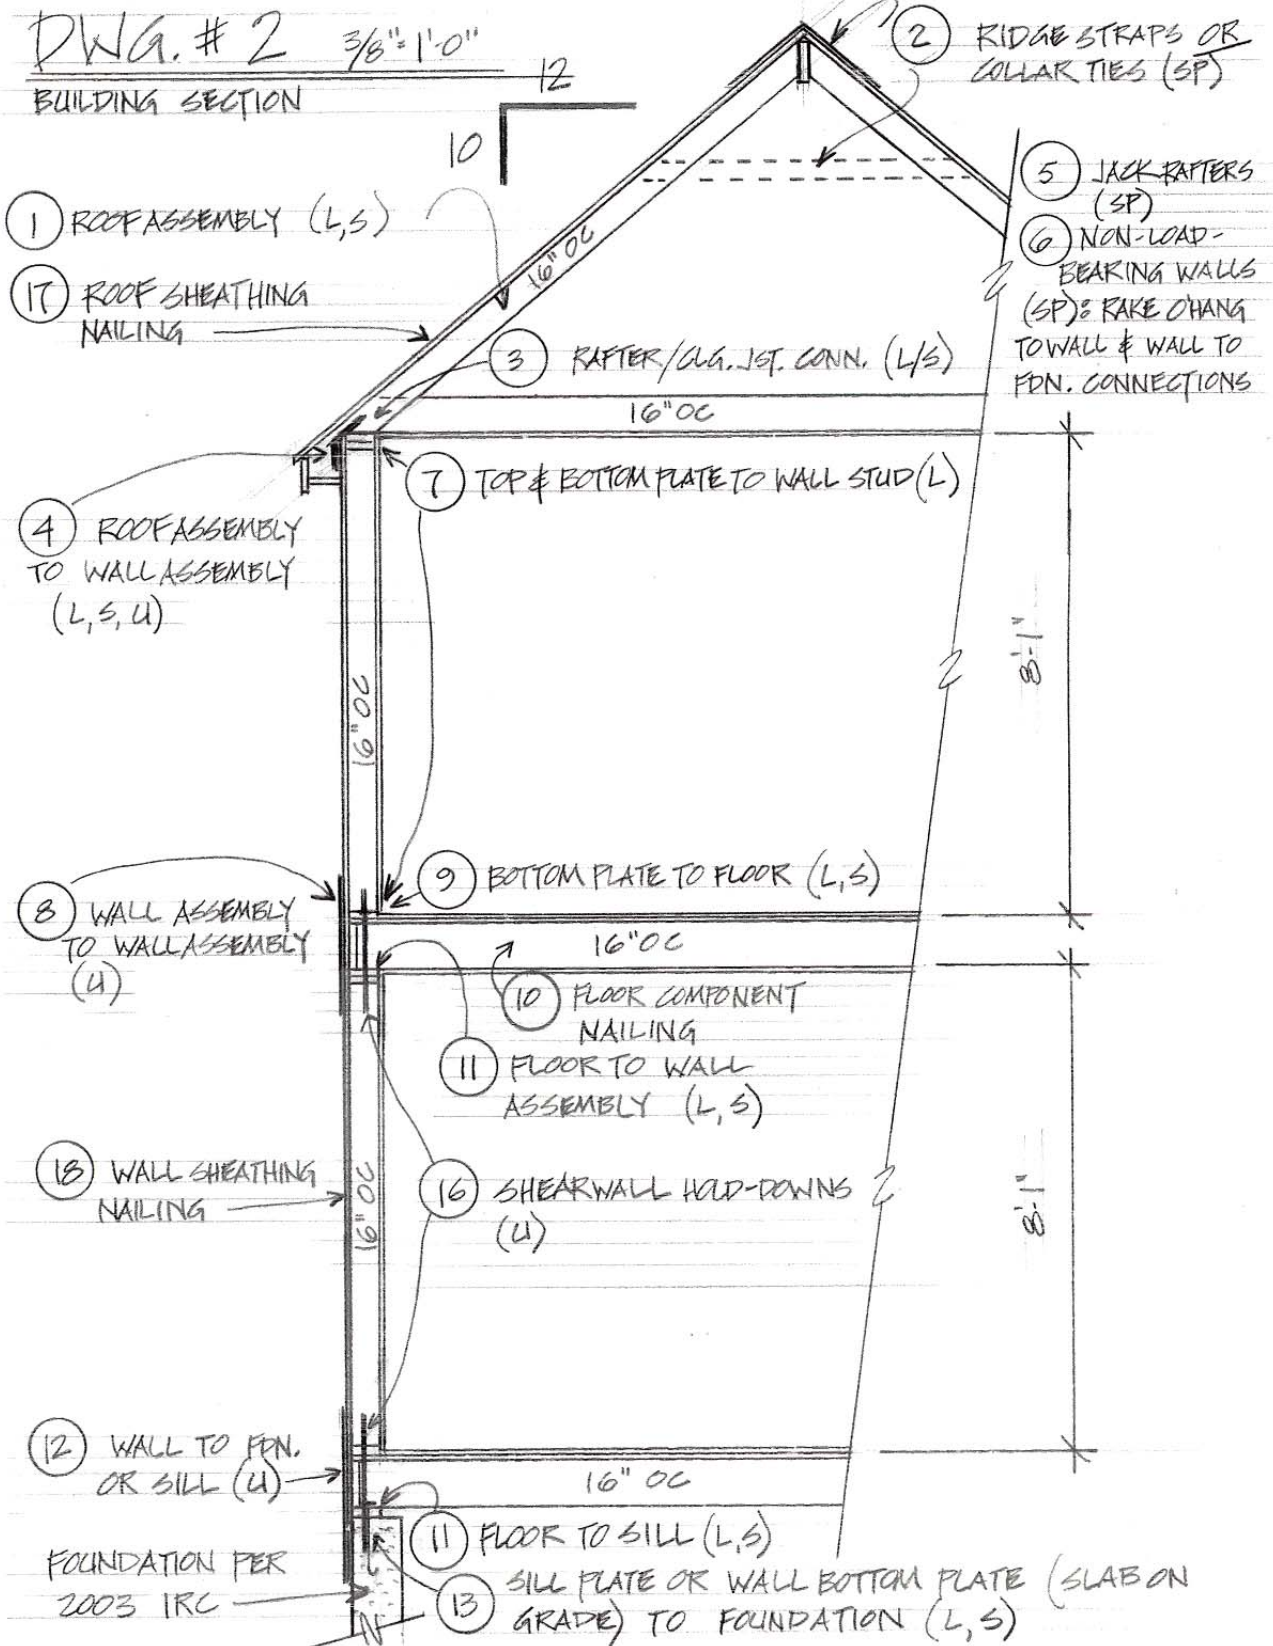 DWG. # 2 3/8"=1'-0"
BUILDING SECTION
12
10
2 RIDGE STRAPS OR
COLLAR TIES (SP)
5 JACK RAFTERS
(SP)
6 NON-LOAD-
BEARING WALLS
(SP): RAKE O'HANG
TO WALL & WALL TO
FDN. CONNECTIONS
1 ROOF ASSEMBLY (L,S)
17 ROOF SHEATHING
NAILING
16" OC
3 RAFTER/CLG. JST. CONN. (L/S)
16" OC
7 TOP & BOTTOM PLATE TO WALL STUD (L)
4 ROOF ASSEMBLY
TO WALL ASSEMBLY
(L, S, U)
8'-1"
16" OC
9 BOTTOM PLATE TO FLOOR (L,S)
8 WALL ASSEMBLY
TO WALL ASSEMBLY
(U)
16" OC
10 FLOOR COMPONENT
NAILING
11 FLOOR TO WALL
ASSEMBLY (L, S)
18 WALL SHEATHING
NAILING
16" OC
16 SHEARWALL HOLD-DOWNS
(U)
8'-1"
12 WALL TO FDN.
OR SILL (U)
16" OC
11 FLOOR TO SILL (L,S)
FOUNDATION PER
2003 IRC
13 SILL PLATE OR WALL BOTTOM PLATE (SLAB ON
GRADE) TO FOUNDATION (L, S)